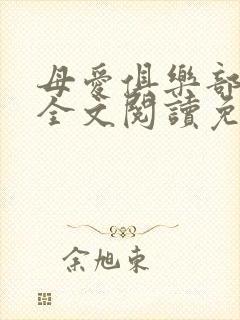 母愛俱樂部
全文閱讀免
余旭東